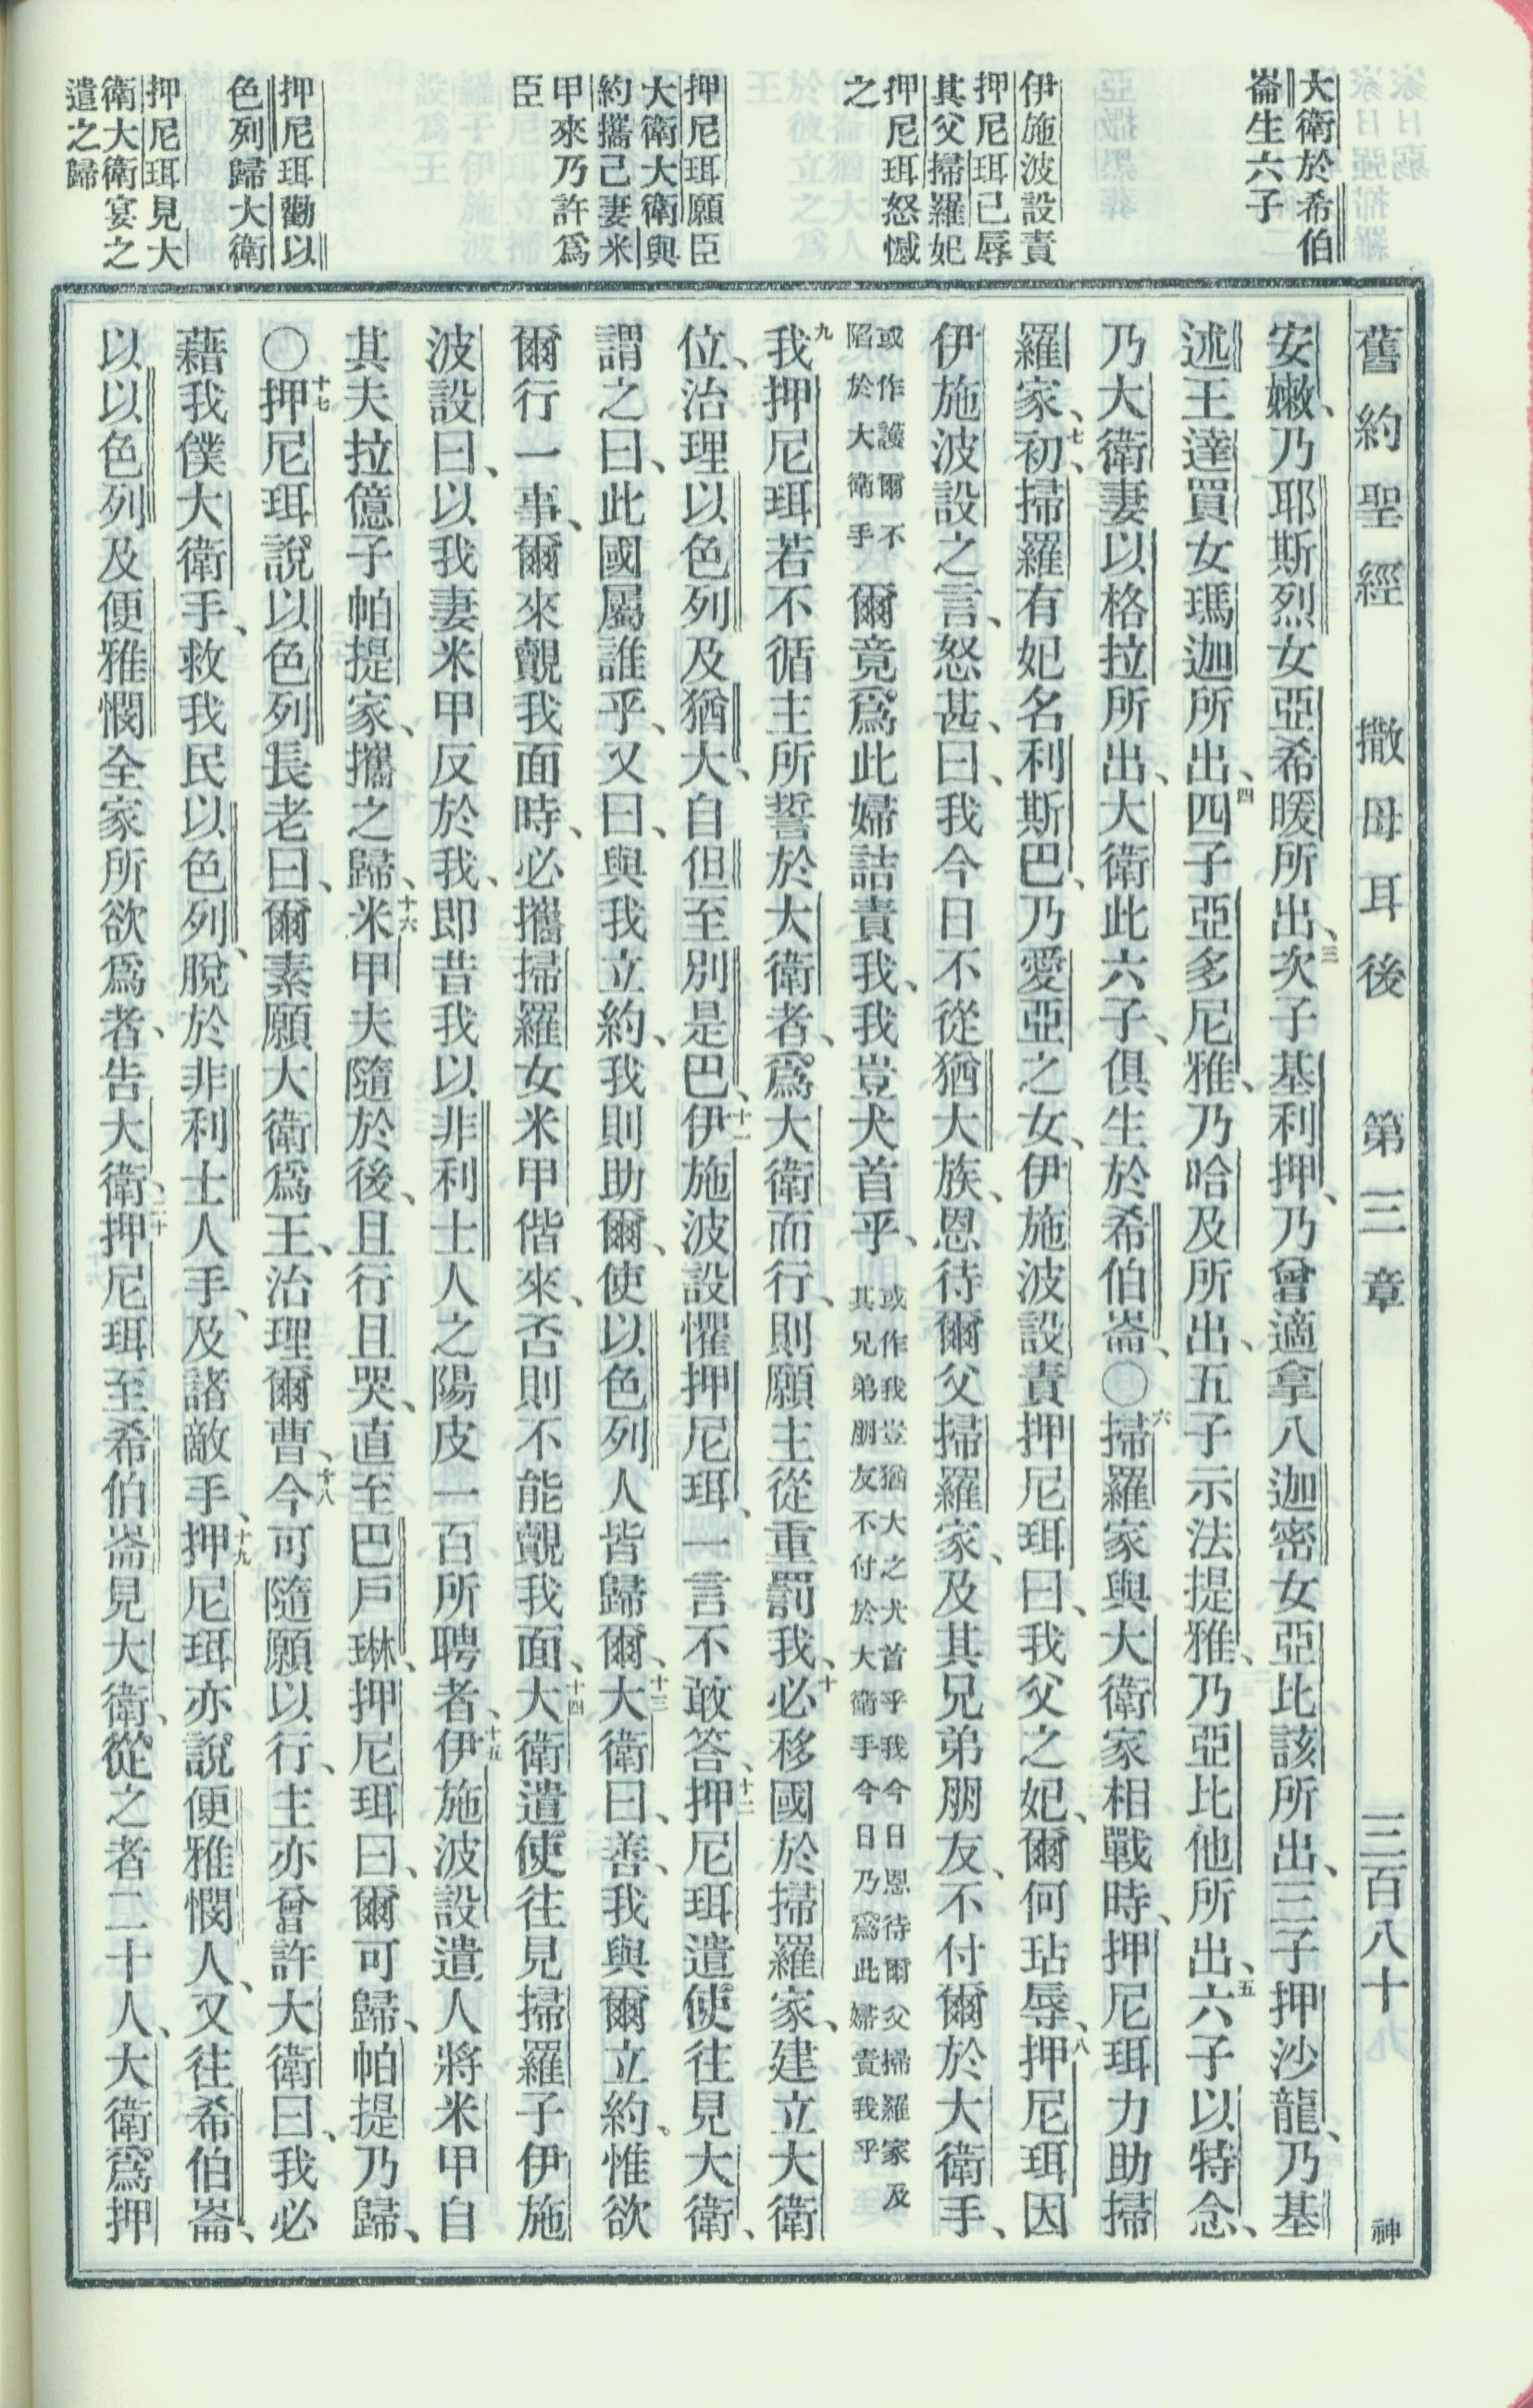 舊約聖經　撒母耳後　第三章　三百八十　神
大衛於希伯
崙生六子
伊施波設責
押尼珥已辱
其父掃羅妃
押尼珥怒憾
之
押尼珥願臣
大衛大衛與
約攜己妻米
甲來乃許爲
臣
押尼珥勸以
色列歸大衛
押尼珥見大
衛大衛宴之
遣之歸
安嫩、乃耶斯烈女亞希暖所出、三次子基利押、乃曾適拿八迦密女亞比該所出、三子押沙龍、乃基
述王達買女瑪迦所出、四四子亞多尼雅、乃哈及所出、五子示法提雅、乃亞比他所出、五六子以特念、
乃大衛妻以格拉所出、大衛此六子、俱生於希伯崙、〇六掃羅家與大衛家相戰時、押尼珥力助掃
羅家、七初、掃羅有妃名利斯巴、乃愛亞之女、伊施波設責押尼珥曰、我父之妃、爾何玷辱、八押尼珥因
伊施波設之言、怒甚、曰、我今日不從猶大族、恩待爾父掃羅家、及其兄弟朋友、不付爾於大衛手、
或作護爾不
陷於大衛手
爾竟爲此婦詰責我、我豈犬首乎、
或作我豈猶大之犬首乎我今日恩待爾父掃羅家及
其兄弟朋友不付於大衛手今日乃爲此婦責我乎
九我押尼珥若不循主所誓於大衛者、爲大衛而行、則願主從重罰我、十必移國於掃羅家、建立大衛
位、治理以色列及猶大、自但至別是巴、十一伊施波設懼押尼珥、一言不敢答、十二押尼珥遣使往見大衛、
謂之曰、此國屬誰乎、又曰、與我立約、我則助爾、使以色列人皆歸爾、十三大衛曰、善、我與爾立約。惟欲
爾行一事、爾來覿我面時、必攜掃羅女米甲偕來、否則不能覿我面、十四大衛遣使往見掃羅子伊施
波設曰、以我妻米甲反於我、即昔我以非利士人之陽皮一百所聘者、十五伊施波設遣人將米甲自
其夫拉億子帕提家、攜之歸、十六米甲夫隨於後、且行且哭、直至巴戶琳、押尼珥曰、爾可歸、帕提乃歸、
〇十七押尼珥說以色列長老曰、爾素願大衛爲王、治理爾曹、十八今可隨願以行、主亦曾許大衛曰、我必
藉我僕大衛手、救我民以色列、脫於非利士人手、及諸敵手、十九押尼珥亦說便雅憫人、又往希伯崙、
以以色列及便雅憫全家所欲爲者、告大衛、二十押尼珥至希伯崙見大衛、從之者二十人、大衛爲押